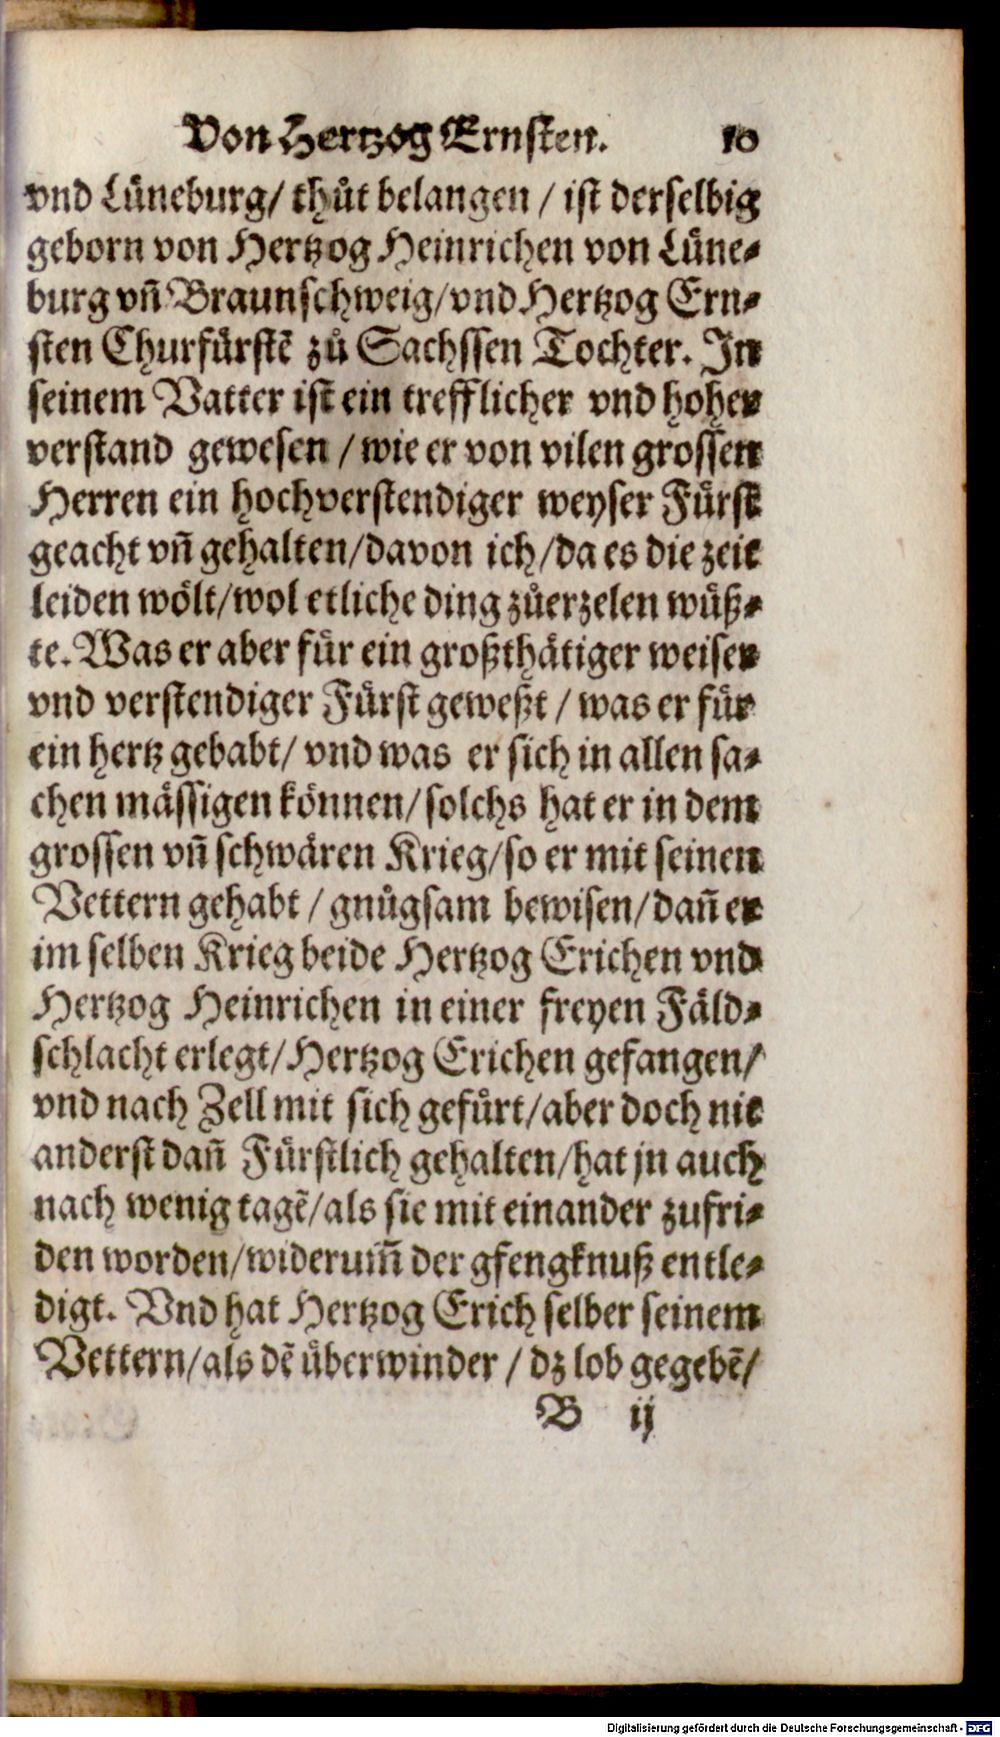 Von Hertzog Ernsten. 10
vnd Lüneburg/ thůt belangen / ist derselbig
geborn von Hertzog Heinrichen von Lüne-
burg vñ Braunschweig/vnd Hertzog Ern-
sten Churfürstẽ zů Sachssen Tochter. In
seinem Vatter ist ein trefflicher vnd hoher
verstand gewesen / wie er von vilen grossen
Herren ein hochverstendiger weyser Fürst
geacht vñ gehalten/davon ich/da es die zeit
leiden wölt/wol etliche ding zůerzelen wüß-
te. Was er aber für ein großthätiger weiser
vnd verstendiger Fürst geweßt / was er für
ein hertz gebabt/ vnd was er sich in allen sa-
chen mässigen können/solchs hat er in dem
grossen vñ schwären Krieg/so er mit seinen
Vettern gehabt / gnůgsam bewisen/dañ er
im selben Krieg beide Hertzog Erichen vnd
Hertzog Heinrichen in einer freyen Fäld-
schlacht erlegt/Hertzog Erichen gefangen/
vnd nach Zell mit sich gefürt/aber doch nit
anderst dañ Fürstlich gehalten/hat jn auch
nach wenig tagẽ/als sie mit einander zufri-
den worden/widerum̃ der gfengknuß entle-
digt. Vnd hat Hertzog Erich selber seinem
Vettern/als dẽ überwinder / dz lob gegebẽ/
B ij
Digitalisierung gefördert durch die Deutsche Forschungsgemeinschaft - DFG